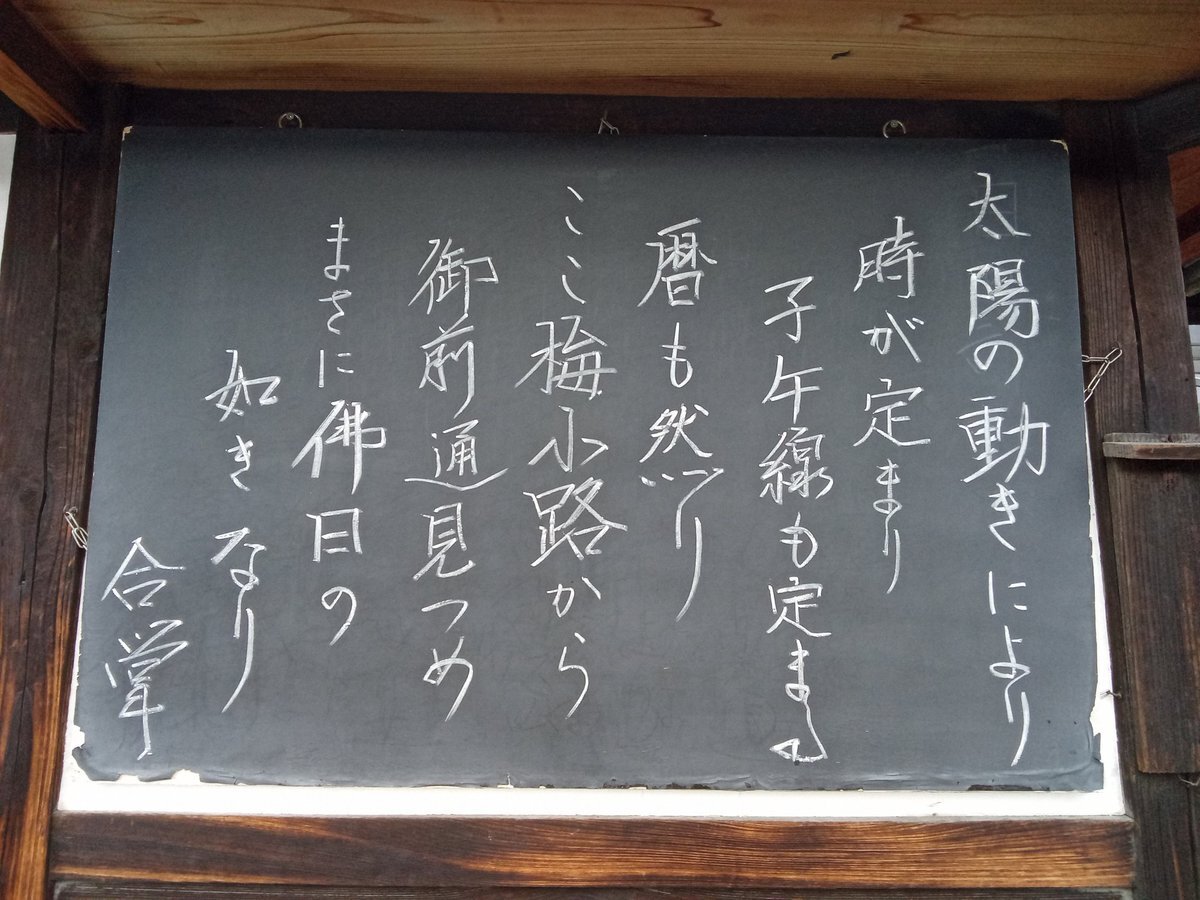 太陽の動きにより
時が定まり
子午線も定まる
暦も然り
ここ梅小路から
御前通見つめ
まさに佛日の
如きなり
合掌